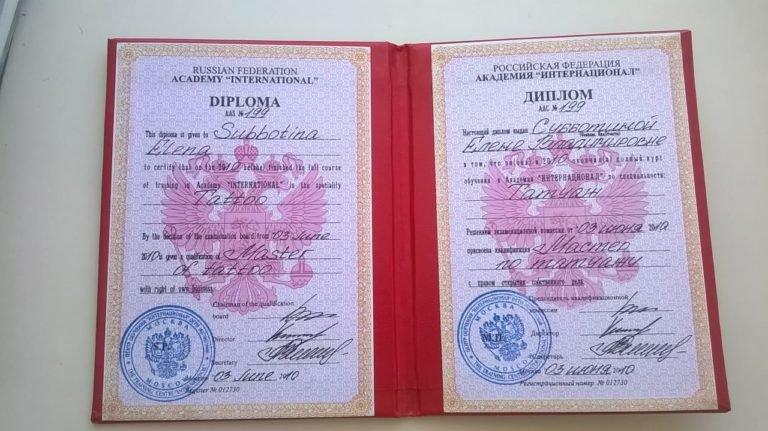 RUSSIAN FEDERATION
ACADEMY "INTERNATIONAL"
DIPLOMA
AAS № 199
This diploma is given to Subbotina
Elena
to certify that on the 2010 he/she finished the full course
of training in Academy "INTERNATIONAL" in the speciality
Tattoo
By the decision of the examination board from 03 June
2010 is given a qualification of Master
of tattoo
with right of own business
Chairman of the qualification
board
Director
Secretary
Moscow 03 June 2010
Register № 012730
РОССИЙСКАЯ ФЕДЕРАЦИЯ
АКАДЕМИЯ "ИНТЕРНАЦИОНАЛ"
ДИПЛОМ
ААС № 199
Настоящий диплом выдан Субботиной
Елене Владимировне
в том, что он(она) в 2010 окончил(а) полный курс
обучения в Академии "ИНТЕРНАЦИОНАЛ" по специальности:
Татуаж
Решением экзаменационной комиссии от 03 июня 2010
присвоена квалификация Мастер
по татуажу
с правом открытия собственного дела
Председатель квалификационной
комиссии
М.П.
Директор
Секретарь
Москва 03 июня 2010
Регистрационный номер № 012730
МОСКВА
MOSCOW